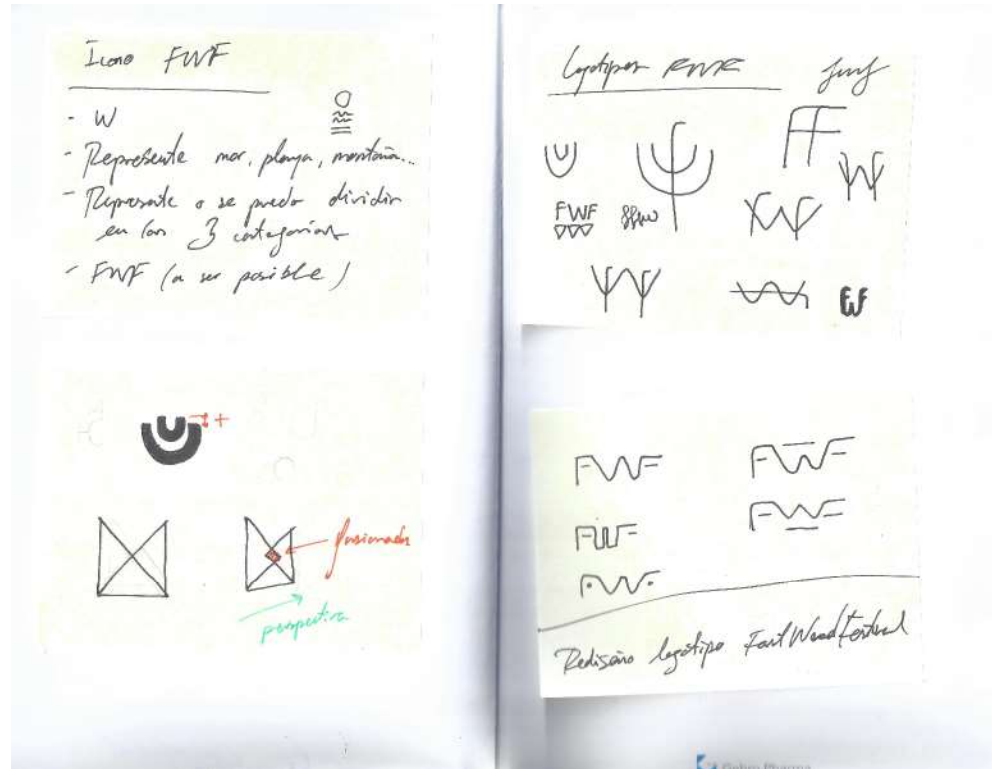 Icono FWF
- W
- Represente mar, playa, montaña...
- Represente o se pueda dividir
en las 3 categorías
- FWF (a ser posible)
+
fusionados
perspectiva
Logotipos FWF fwf
FWF
FWF FWF
FWF FWF
FWF
Rediseño logotipo FastWoodFestival
Pharma